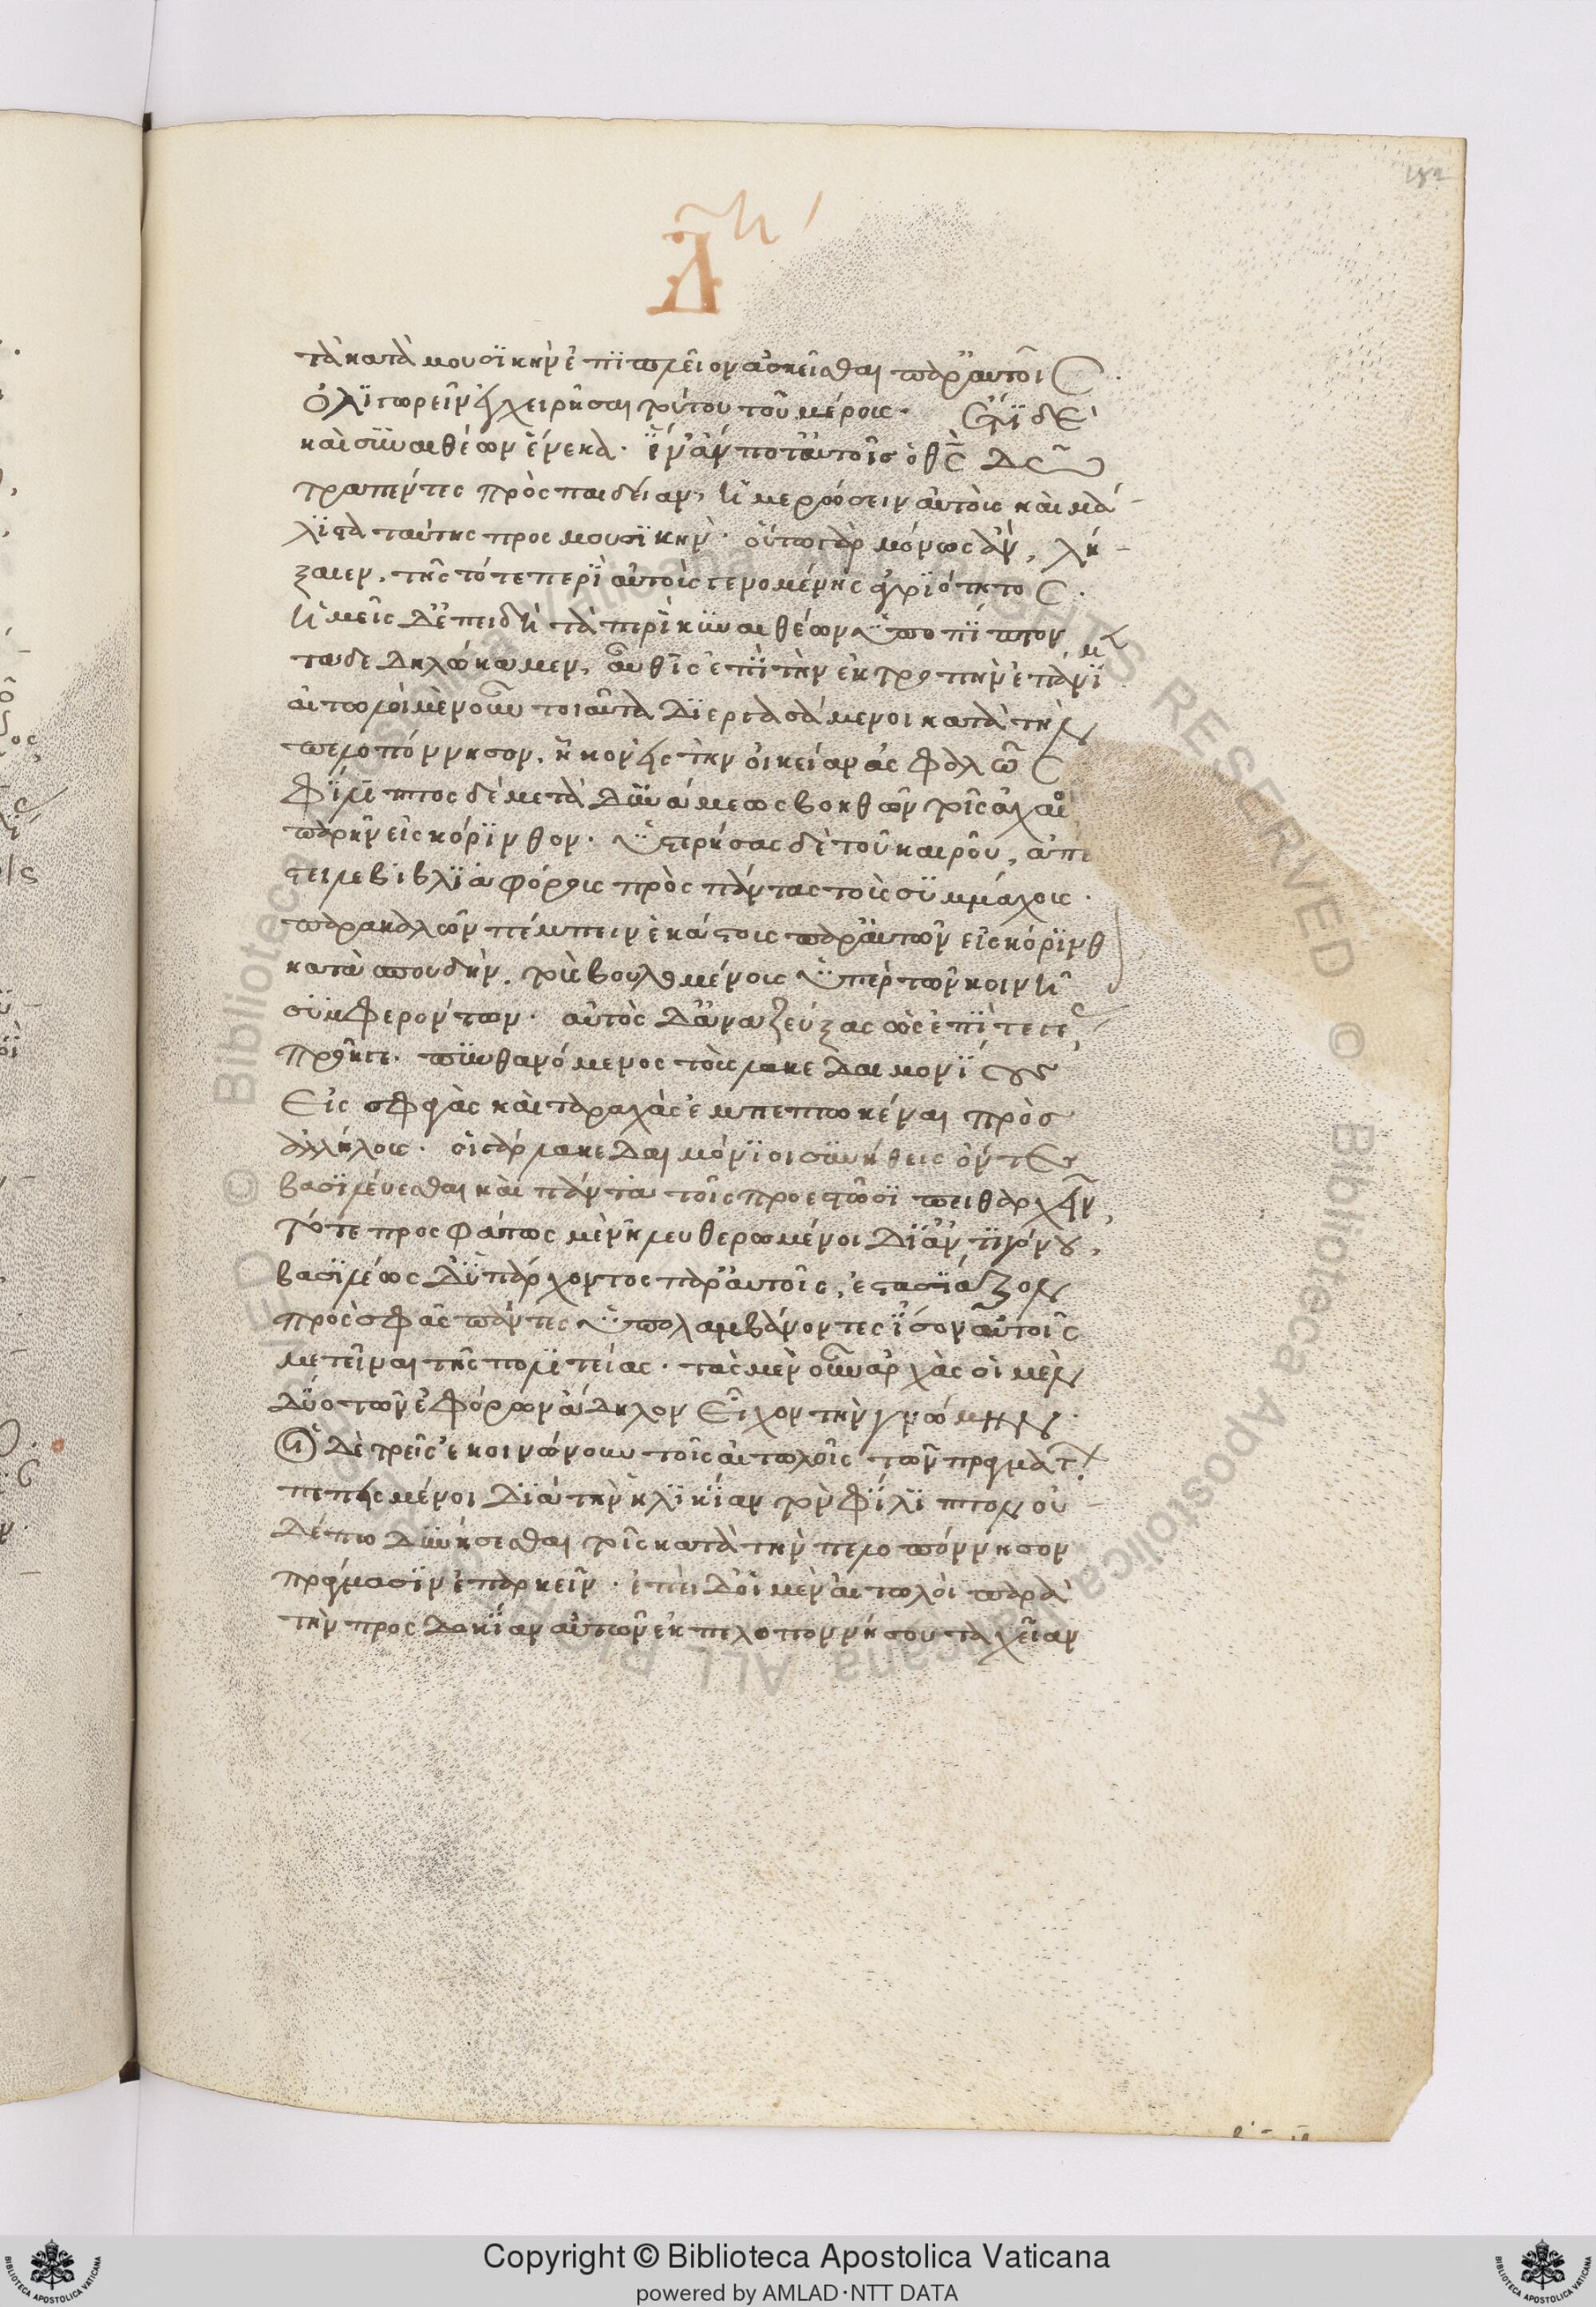 182
Δη
τὰ κατὰ μουσϊκὴν ἐπϊπλεῖον ἀσκεῖσθαι παρ' αὐτοῖς.
ὀλϊγωρεῖν ἐγχειρῆσαι τούτου τοῦ μέρους. ἔτϊ δὲ
καὶ Κϋναιθέων ἕνεκα. ἵν' ἄν ποτ' αὐτοῖς ὁ θεὸς εὖ δῶ
τραπέντες πρὸς παιδείαν, ἡμερώσειν αὐτοὺς καὶ μά
λϊστα ταύτης προς μουσϊκήν. οὕτως γὰρ μόνως ἂν, λή
ξαιεν, τῆς τότε περὶ αὐτοὺς γενομένης ἀγρϊότητος.
ἡμεῖς δ' ἐπειδὴ τὰ περὶ κϋναιθέων ὑποπϊπτον
τα δεδηλώκαμεν, αὖθϊς ἐπὶ τὴν ἐκτροπὴν ἐπάνϊμεν
αἰτωλοὶ μὲν οὖν τοιαῦτα δϊεργασάμενοι κατὰ τὴν
πελοπόννησον, ἧκον εἰς τὴν οἰκείαν ἀσφαλῶς
φίλϊππος δὲ μετὰ δϋνάμεως βοηθῶν τοῖς ἀχαιοῖς
παρῆν εἰς κόρϊνθον. ὑστερήσας δὲ τοῦ καιροῦ, ἀπέ
στειλε βιβλϊαφόρους πρὸς πάντας τοὺς σϋμμάχους.
παρακαλῶν πέμπειν ἑκάστους παρ' αὑτῶν εἰς κόρϊνθον
κατὰ σπουδὴν, τοὺς βουλευσομένους ὑπὲρ τῶν κοινῇ
σϋμφερόντων. αὐτὸς δ' ἀναζεύξας ὡς ἐπὶ τεγέας
προῆγε. πϋνθανόμενος τοὺς λακεδαιμονϊους
εἰς σφαγὰς καὶ ταραχὰς ἐμπεπτωκέναι πρὸς
ἀλλήλους. οἱ γὰρ λακεδαιμόνϊοι σϋνήθεις ὄντες
βασϊλεύεσθαι καὶ πάντα τοῖς προεστῶσϊ πειθαρχεῖν,
τότε προσφάτως μὲν ἠλευθερωμένοι δϊ' ἀντϊγόνου,
βασϊλέως δ' οὐχ ὑπάρχοντος παρ' αὐτοῖς, ἐστασϊαζον
πρὸς σφᾶς πάντες ὑπολαμβάνοντες ἴσον αὑτοῖς
μετεῖναι τῆς πολϊτείας. τὰς μὲν οὖν ἀρχὰς οἱ μὲν
δύο τῶν ἐφόρων ἄδηλον εἶχον τὴν γνώμην.
οἱ δὲ τρεῖς ἐκοινώνουν τοῖς αἰτωλοῖς τῶν πραγμάτων
πεπεισμένοι δϊὰ τὴν ἡλϊκίαν τὸν φίλϊππον οὐ
δέπω δϋνήσεσθαι τοῖς κατὰ τὴν πελοπόννησον
πράγμασϊν ἐπαρκεῖν. ἐπεὶ δ' οἱ μὲν αἰτωλοὶ παρὰ
τὴν προσδοκίαν αὐτῶν ἐκ πελοποννήσου ταχεῖαν
Copyright © Biblioteca Apostolica Vaticana
powered by AMLAD·NTT DATA